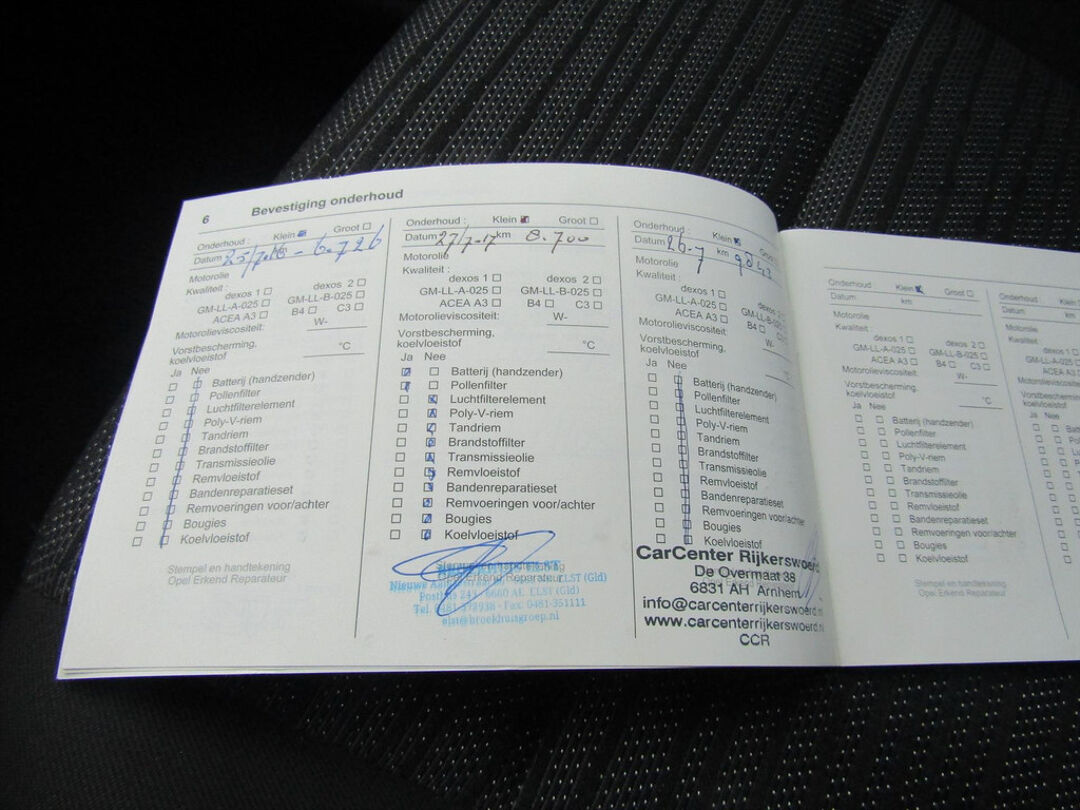 6 Bevestiging onderhoud
Onderhoud : Klein Groot
Datum 25/7-16 - 6.726
Motorolie
Kwaliteit :
dexos 1 dexos 2
GM-LL-A-025 GM-LL-B-025
ACEA A3 B4 C3
Motorolieviscositeit: W-
Vorstbescherming,
koelvloeistof °C
Ja Nee
Batterij (handzender)
Pollenfilter
Luchtfilterelement
Poly-V-riem
Tandriem
Brandstoffilter
Transmissieolie
Remvloeistof
Bandenreparatieset
Remvoeringen voor/achter
Bougies
Koelvloeistof
Stempel en handtekening
Opel Erkend Reparateur
Onderhoud : Klein Groot
Datum 27/7-17 km 8.700
Motorolie
Kwaliteit :
dexos 1 dexos 2
GM-LL-A-025 GM-LL-B-025
ACEA A3 B4 C3
Motorolieviscositeit: W-
Vorstbescherming,
koelvloeistof °C
Ja Nee
Batterij (handzender)
Pollenfilter
Luchtfilterelement
Poly-V-riem
Tandriem
Brandstoffilter
Transmissieolie
Remvloeistof
Bandenreparatieset
Remvoeringen voor/achter
Bougies
Koelvloeistof
Opel Erkend Reparateur
Nieuwe ELST (Gld)
6660 AE ELST (Gld)
Fax: 0481-351111
elst@broekhuisgroep.nl
Onderhoud : Klein
Datum 26-7 km
Motorolie
Kwaliteit :
dexos 1 dexos
GM-LL-A-025 GM-LL-B-025
ACEA A3 B4
Motorolieviscositeit: W-
Vorstbescherming,
koelvloeistof °C
Ja Nee
Batterij (handzender)
Pollenfilter
Luchtfilterelement
Poly-V-riem
Tandriem
Brandstoffilter
Transmissieolie
Remvloeistof
Bandenreparatieset
Remvoeringen voor/achter
Bougies
Koelvloeistof
CarCenter Rijkerswoerd
De Overmaat 38
6831 AH Arnhem
info@carcenterrijkerswoerd.n
www.carcenterrijkerswoerd.n
CCR
Onderhoud : Klein Groot
Datum km
Motorolie
Kwaliteit :
dexos 1 dexos 2
GM-LL-A-025 GM-LL-B-025
ACEA A3 B4 C3
Motorolieviscositeit: W-
Vorstbescherming,
koelvloeistof °C
Ja Nee
Batterij (handzender)
Pollenfilter
Luchtfilterelement
Poly-V-riem
Tandriem
Brandstoffilter
Transmissieolie
Remvloeistof
Bandenreparatieset
Remvoeringen voor/achter
Bougies
Koelvloeistof
Stempel en handtekening
Opel Erkend Reparateur
Onderhoud : Klein
Datum km
Motorolie
Kwaliteit :
dexos 1
GM-LL-A-025
ACEA A3
Motorolieviscositeit:
Vorstbescherming,
koelvloeistof
Ja Nee